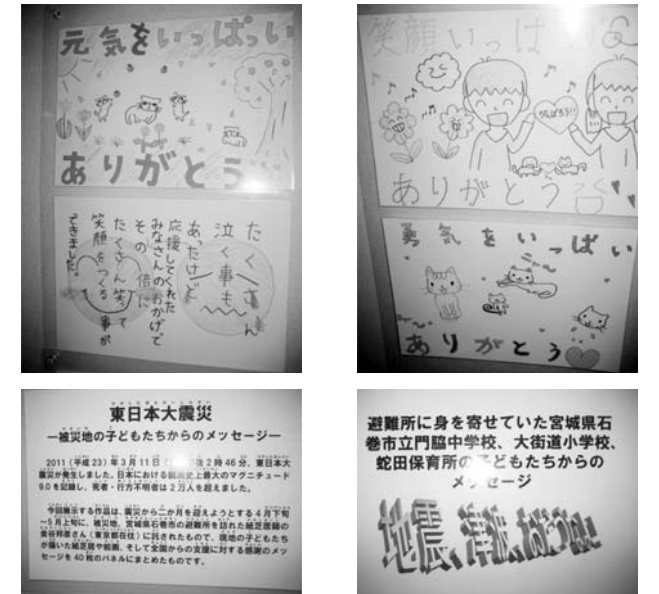 元気をいっぱい
ありがとう
たくさん
泣く事も
あったけど
応援してくれた
みなさんのおかげで
その 倍に
たくさん笑って
笑顔をつくる 事が
できました。
笑顔いっぱ
がんばろう!!
ありがとう
勇気をいっぱい
ありがとう
東日本大震災
―被災地の子どもたちからのメッセージ―
2011(平成23)年3月11日 午後2時46分、東日本大
震災が発生しました。日本における観測史上最大のマグニチュード
9.0を記録し、死者・行方不明者は2万人を超えました。
今回展示する作品は、震災から二か月を迎えようとする4月下旬
~5月上旬に、被災地、宮城県石巻市の避難所を訪れた紙芝居師の
金谷邦彦さん(東京都在住)に託されたもので、現地の子どもたち
が描いた紙芝居や絵画、そして全国からの支援に対する感謝のメッ
セージを40枚のパネルにまとめたものです。
避難所に身を寄せていた宮城県石
巻市立門脇中学校、大街道小学校、
蛇田保育所の子どもたちからの
メッセージ
地震、津波、